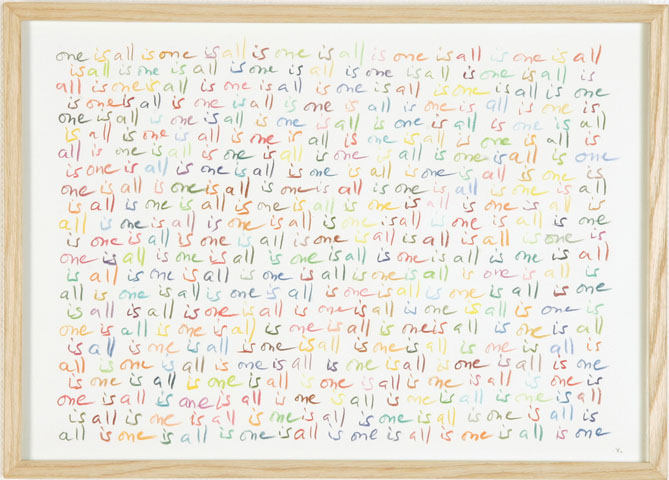 one is all is one is all is one is all is one is all is one is all
is all is one is all is one is all is one is all is one is all is
all is one is all is one is all is one is all is one is all is one
is one is all is one is all is one is all is one is all is one is
one is all is one is all is one is all is one is all is one is all
is all is one is all is one is all is one is all is one is all is
all is one is all is one is all is one is all is one is all is one
is one is all is one is all is one is all is one is all is one is
one is all is one is all is one is all is one is all is one is all
is all is one is all is one is all is one is all is one is all is
all is one is all is one is all is one is all is one is all is one
is one is all is one is all is one is all is one is all is one is
one is all is one is all is one is all is one is all is one is all
is all is one is all is one is all is one is all is one is all is
all is one is all is one is all is one is all is one is all is one
is one is all is one is all is one is all is one is all is one is
one is all is one is all is one is all is one is all is one is all
is all is one is all is one is all is one is all is one is all is
all is one is all is one is all is one is all is one is all is one
is one is all is one is all is one is all is one is all is one is
one is all is one is all is one is all is one is all is one is all
is all is one is all is one is all is one is all is one is all is
all is one is all is one is all is one is all is one is all is one